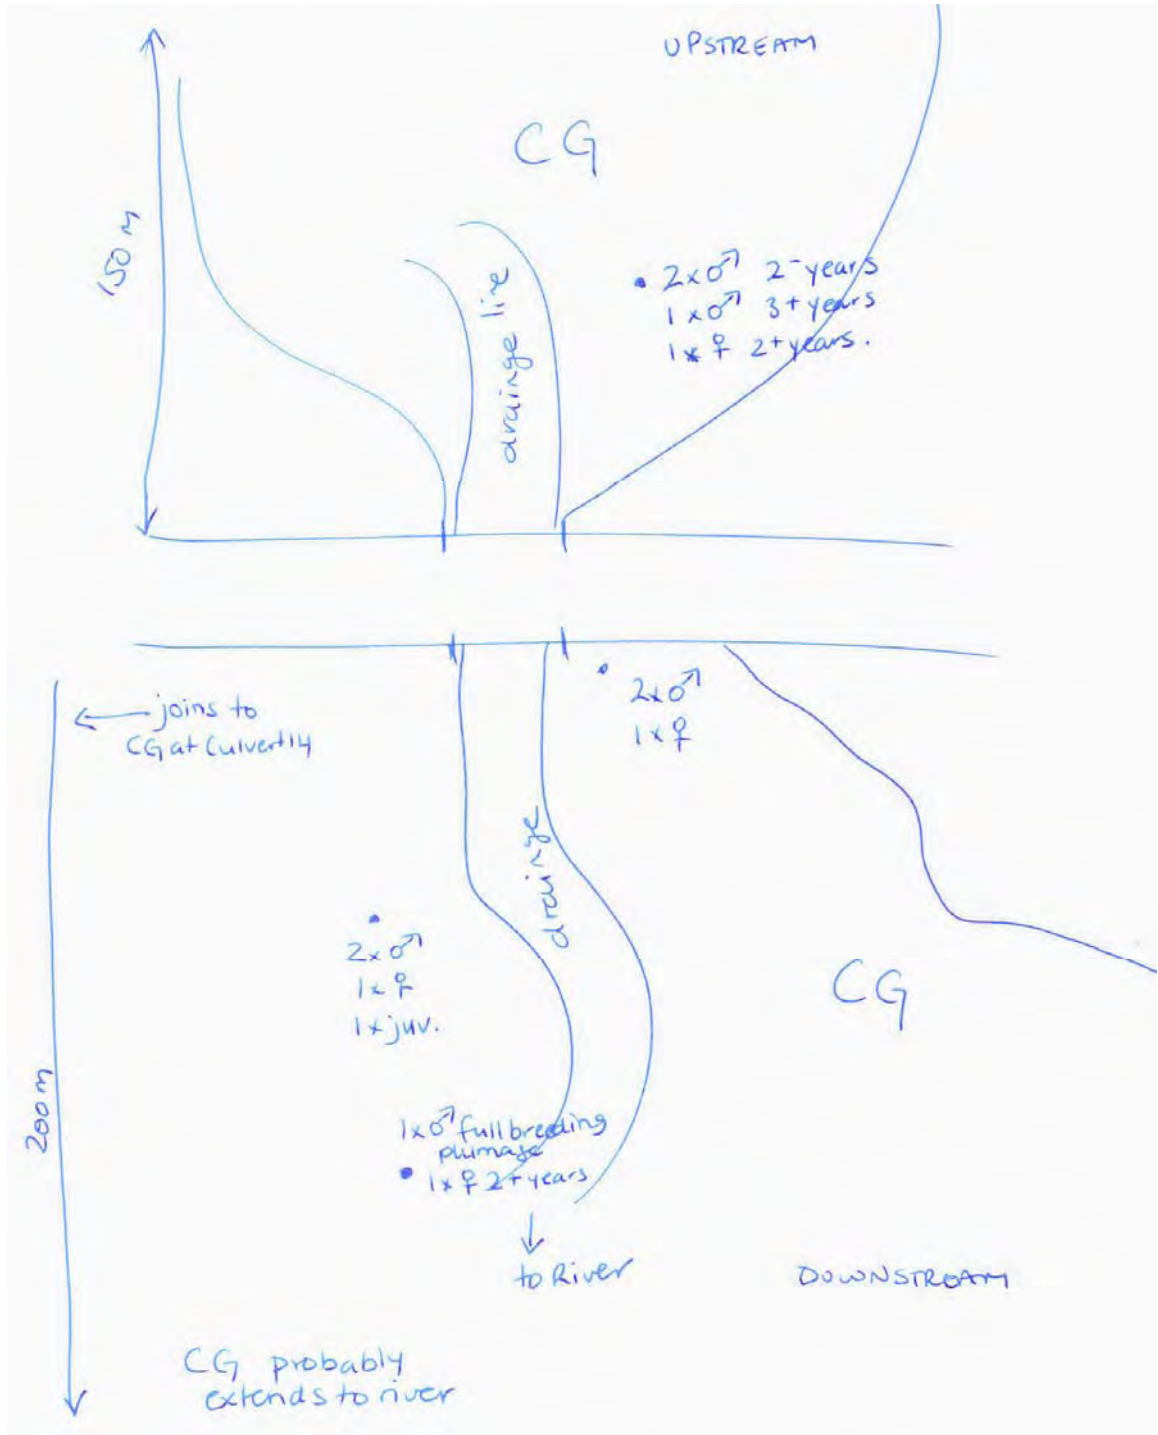 UPSTREAM
CG
150m
drainge line
2x♂ 2-years
1x♂ 3+years
1x♀ 2+years.
joins to
CG at Culvert 14
2x♂
1x♀
drainge
2x♂
1x♀
1x juv.
CG
200m
1x♂ full breeding
plumage
1x♀ 2+years
to River
DOWNSTREAM
CG probably
extends to river